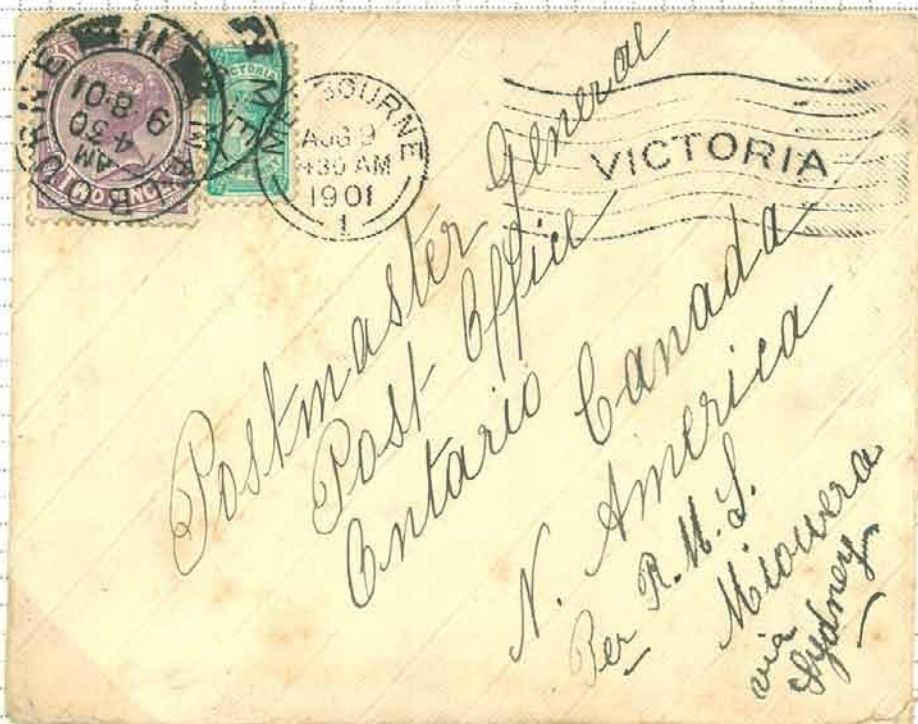 MELBOURNE
4.30
AM
9
8.01
VICTORIA
TWO PENCE
MELBOURNE
AUG 9
4 30 AM
1901
1
VICTORIA
Postmaster General
Post Office
Ontario Canada
N. America
Per R.M.S.
Miowera
via
Sydney